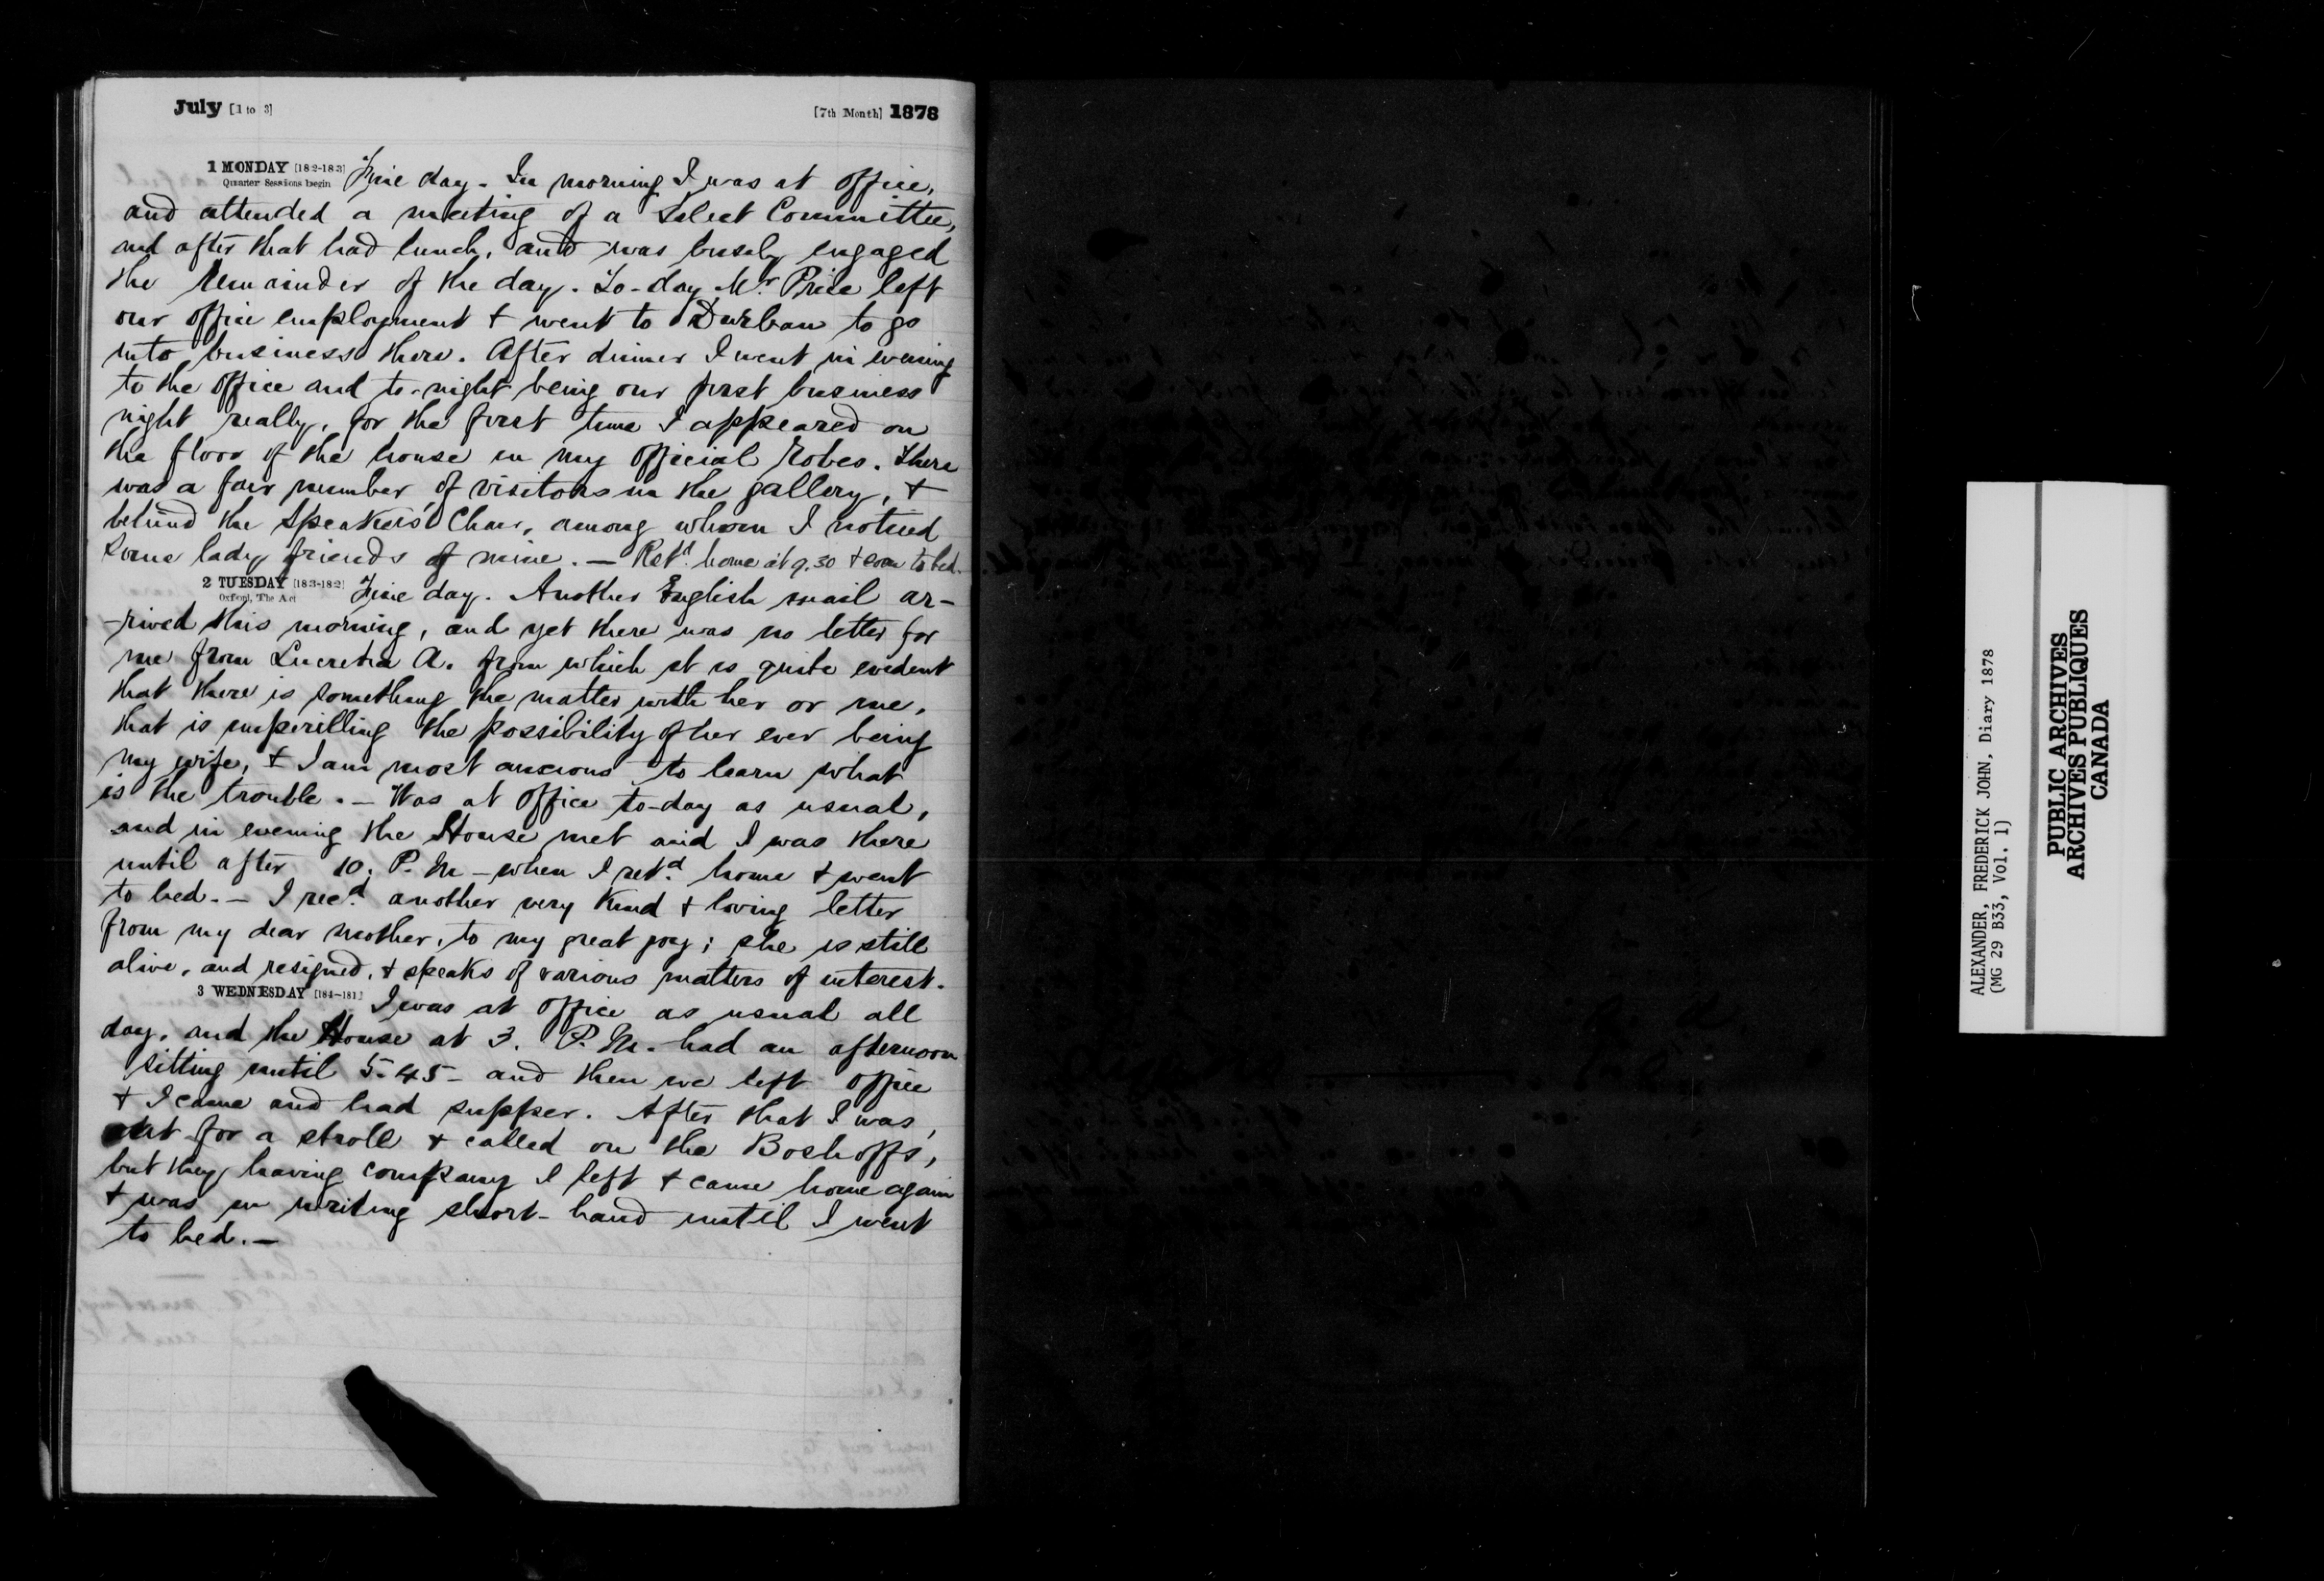 July [1 to 3] [7th Month] 1878
1 MONDAY [182-183] Fine day. In morning I was at office,
Quarter Sessions begin
and attended a meeting of a Select Committee,
and after that had lunch, and was busily engaged
the remainder of the day. To-day Mr. Price left
our office employment + went to Durban to go
into business there. After dinner I went in evening
to the office and to-night being our first business
night really, for the first time I appeared on
the floor of the house in my official robes. There
was a fair number of visitors in the gallery, +
behind the Speakers' Chair, among whom I noticed
some lady friends of mine. — Retd. home at 9.30 + soon to bed.
2 TUESDAY [183-182] Fine day. Another English mail ar-
Oxford, The Act
-rived this morning, and yet there was no letter for
me from Lucretia A. from which it is quite evident
that there is something the matter with her or me,
that is imperilling the possibility of her ever being
my wife, + I am most anxious to learn what
is the trouble. — Was at office to-day as usual,
and in evening the House met and I was there
until after 10. P.M — when I retd. home + went
to bed. — I recd. another very kind + loving letter
from my dear mother, to my great joy; she is still
alive, and resigned, + speaks of various matters of interest.
3 WEDNESDAY [184-181] I was at office as usual all
day, and the House at 3. P.M. had an afternoon
sitting until 5.45 — and then we left office
+ I came and had supper. After that I was
out for a stroll + called on the Boshoffs,
but they having company I left + came home again
+ was in writing short-hand until I went
to bed. —
ALEXANDER, FREDERICK JOHN, Diary 1878
(MG 29 B33, Vol. 1)
PUBLIC ARCHIVES
ARCHIVES PUBLIQUES
CANADA